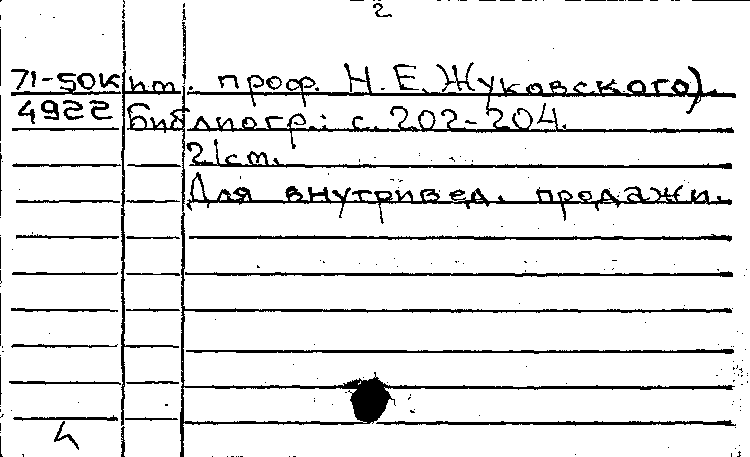 2
71-50к им. проф. Н.Е. Жуковского).
4922 Библиогр.: с. 202-204.
21см.
Для внутривед. продажи.